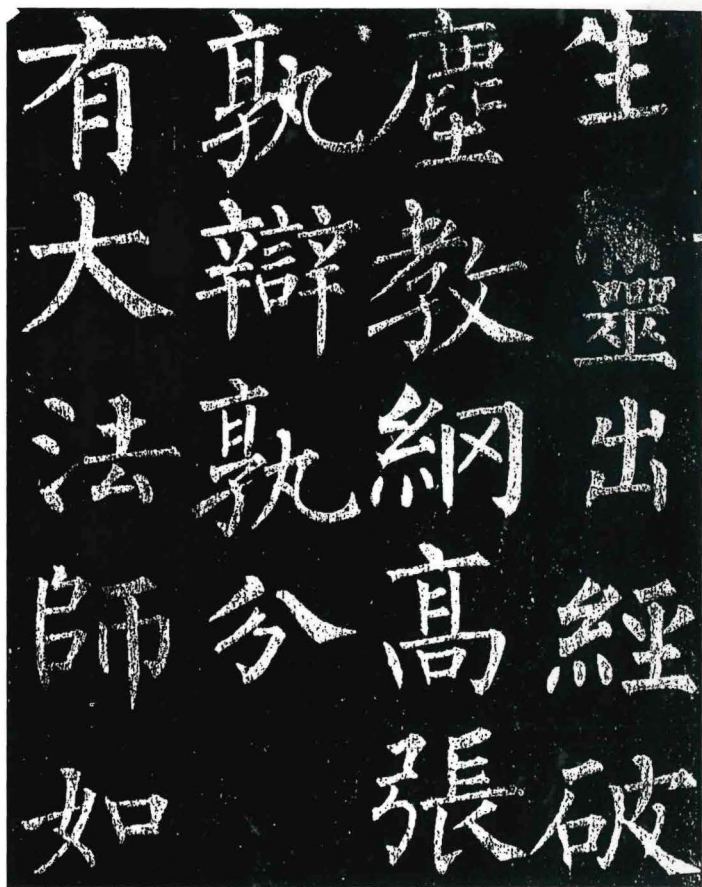 生靈出經破
塵教綱高張
孰辯孰分
有大法師如